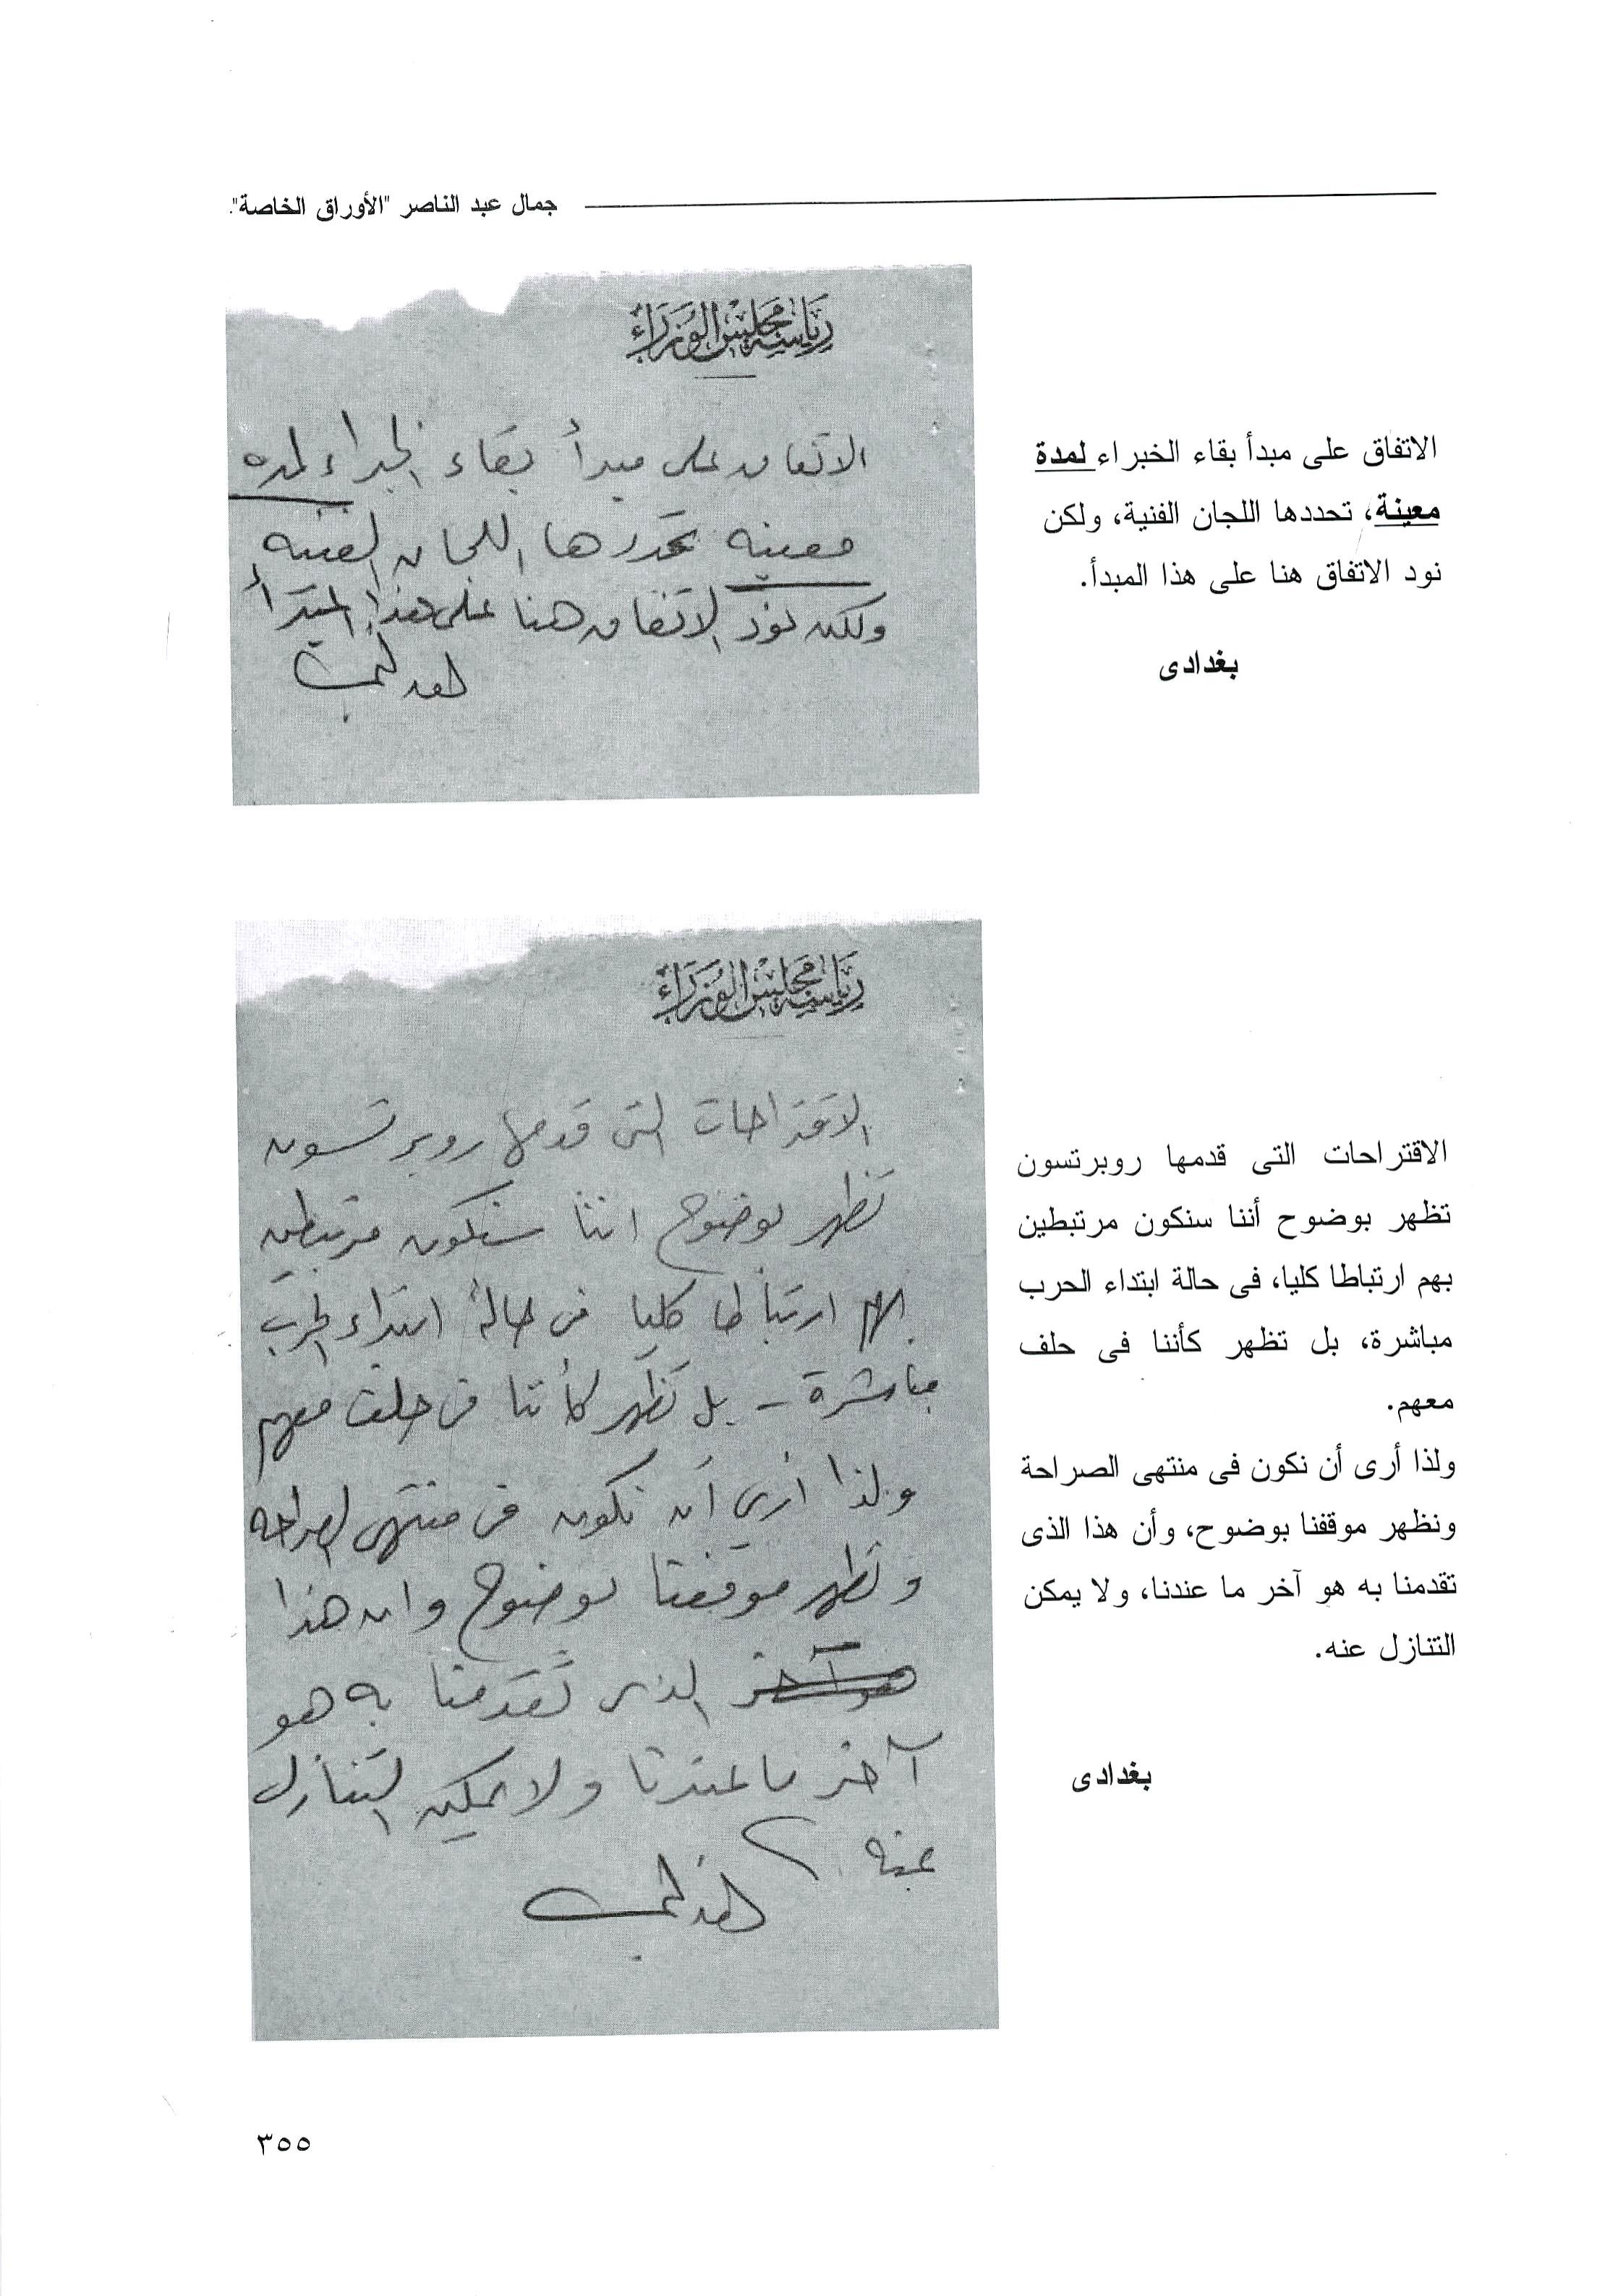 جمال عبد الناصر "الأوراق الخاصة".
رياسة مجلس الوزراء
الاتفاق على مبدأ بقاء الخبراء لمده
معينه تحددها اللجان الفنيه
ولكن نود الاتفاق هنا على هذا المبدأ
الاتفاق على مبدأ بقاء الخبراء لمدة
معينة، تحددها اللجان الفنية، ولكن
نود الاتفاق هنا على هذا المبدأ.
بغدادى
رياسة مجلس الوزراء
الاقتراحات التى قدمها روبرتسون
تظهر بوضوح اننا سنكون مرتبطين
بهم ارتباطا كليا فى حالة ابتداء الحرب
مباشرة - بل تظهر كأننا فى حلف معهم
ولذا أرى أن نكون فى منتهى الصراحه
ونظهر موقفنا بوضوح وان هذا
هو آخر الذى تقدمنا به هو
آخر ما عندنا ولا يمكن التنازل
عنه
الاقتراحات التى قدمها روبرتسون
تظهر بوضوح أننا سنكون مرتبطين
بهم ارتباطا كليا، فى حالة ابتداء الحرب
مباشرة، بل تظهر كأننا فى حلف
معهم.
ولذا أرى أن نكون فى منتهى الصراحة
ونظهر موقفنا بوضوح، وأن هذا الذى
تقدمنا به هو آخر ما عندنا، ولا يمكن
التنازل عنه.
بغدادى
٣٥٥